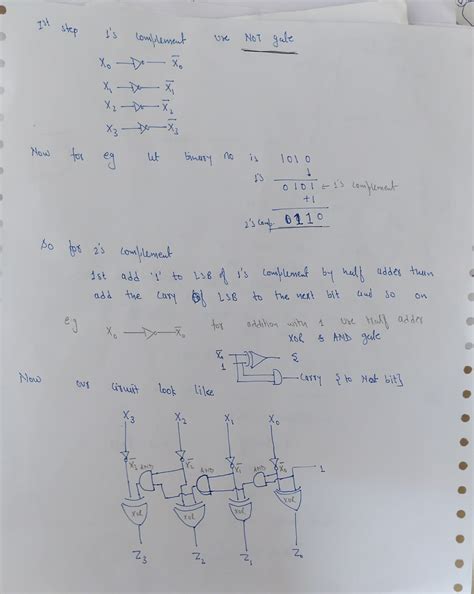 1st step 1's complement use NOT gate
X0 X̅0
X1 X̅1
X2 X̅2
X3 X̅3
Now for eg let binary no is 1010
1's
0101 ← 1's complement
+1
2's comp. 0110
So for 2's complement
1st add '1' to LSB of 1's complement by half adder then
add the cary of LSB to the next bit and so on
eg X0 X̅0 for addition with 1 use half adder
XOR & AND gate
X̅0
1
carry {to next bit}
Now our circuit look like
X3 X2 X1 X0
X̅3 AND X̅2 AND X̅1 AND X̅0 1
XOR XOR XOR XOR
Z3 Z2 Z1 Z0